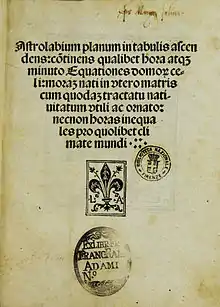 Astrolabium planum in tabulis ascen
dens: cõtinens qualibet hora atqꝫ
minuto. Equationes domoꝝ ce
li: moraꝫ nati in vtero matris
cum quodaꝫ tractatu nati
uitatum vtili ac ornato:
necnon horas ineq̃ua
les pro quolibet cli
mate mundi
L A
BIBLIOTECA NAZIONALE
FIRENZE
EX LIBRIS
FRANC. RAI.
ADAMI
N.º